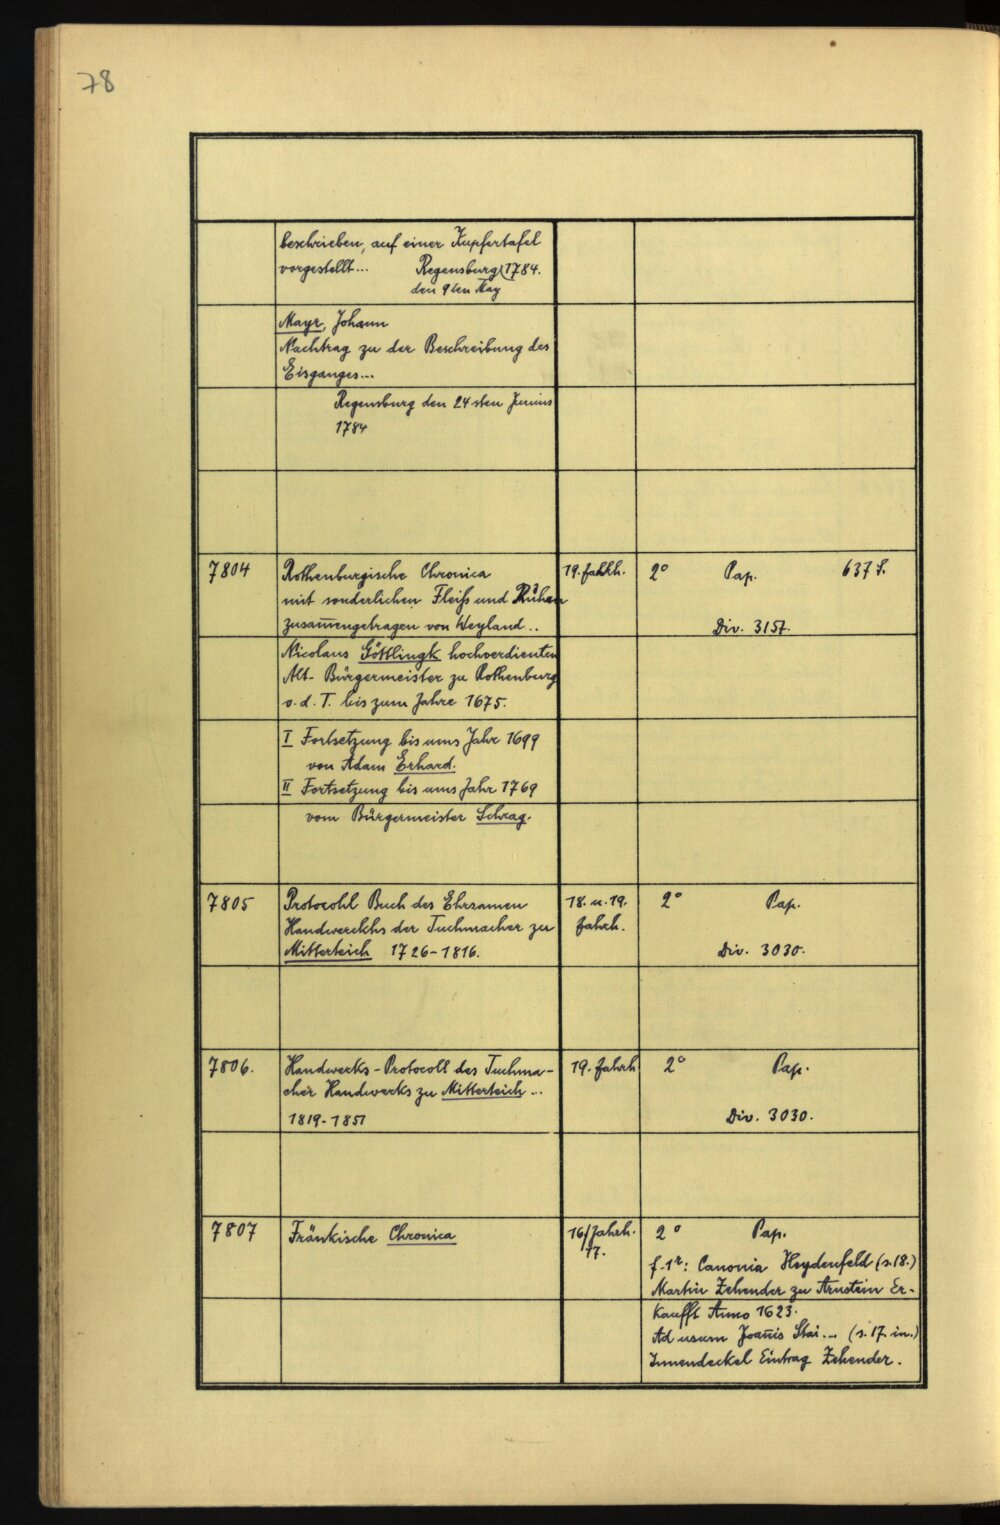 78
beschrieben, auf einer Kupfertafel
vorgestellt... Regensburg 1784.
den 9ten May
Mayr, Johann
Nachtrag zu der Beschreibung des
Eisganges...
Regensburg den 24sten Junius
1784
7804 Rothenburgische Chronica 19. Jahrh. 2° Pap. 637 S.
mit sonderlichen Fleiß und
zusam̄engetragen von Weyland.. Div. 3157.
Nicolaus Göttlingk hochverdienten
Alt-Bürgermeister zu Rothenburg
o.d.T. bis zum Jahre 1675.
I Fortsetzung bis ums Jahr 1699
von Adam Erhard.
II Fortsetzung bis ums Jahr 1769
vom Bürgermeister Schrag.
7805 Protocohl Buch des Ehrsamen 18. u. 19. 2° Pap.
Handwerckhs der Tuchmacher zu Jahrh.
Mitterteich 1726-1816. Div. 3030.
7806. Handwerks-Protocoll des Tuchma- 19. Jahrh 2° Pap.
cher Handwerks zu Mitterteich ...
1819-1851 Div. 3030.
7807 Fränkische Chronica 16/Jahrh. 2° Pap.
17.
f.1r: Canonia Heydenfeld (s.18.)
Martin Zehender zu Arnstein Er-
kaufft Anno 1623.
Ad usum Joan̄is Stai... (s.17. in.)
Innendeckel Eintrag Zehender.